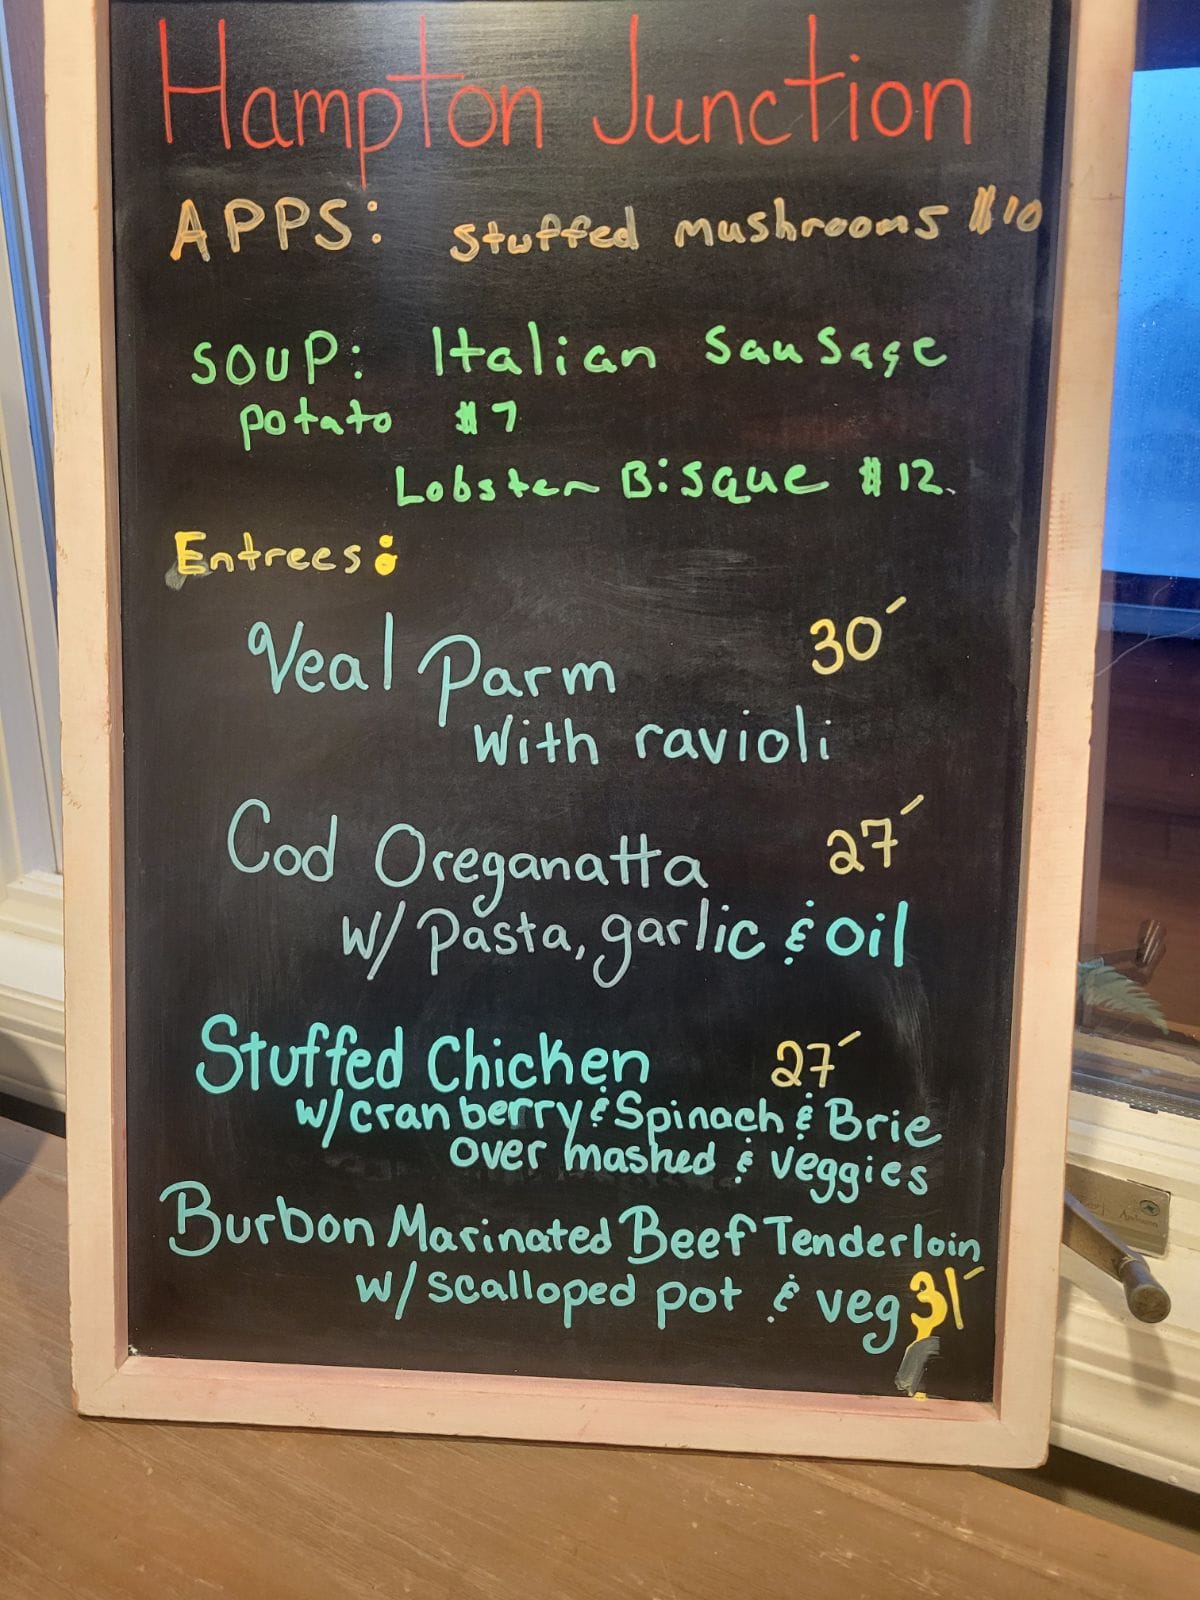 Hampton Junction
APPS: Stuffed mushrooms $10
SOUP: Italian Sausage
potato $7
Lobster Bisque $12.
Entrees:
Veal Parm 30
With ravioli
Cod Oreganatta 27
w/ Pasta, garlic & oil
Stuffed Chicken 27
w/cranberry & Spinach & Brie
over mashed & veggies
Burbon Marinated Beef Tenderloin
w/ scalloped pot & veg 31